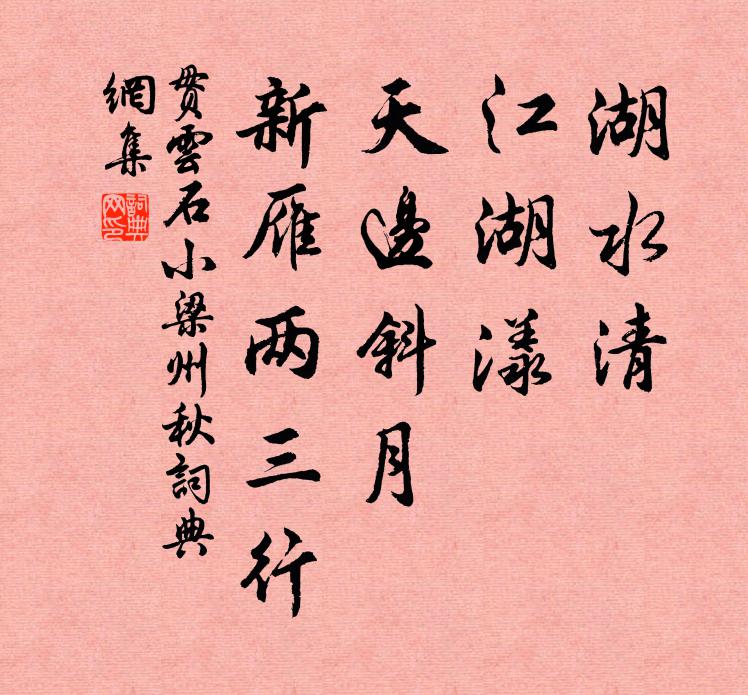 湖水清
江湖漾
天邊斜月
新雁两三行
贯雲石小梁州秋詞典
網集
詞典
网印